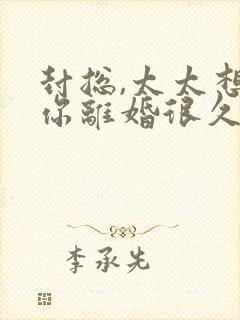 封总,太太想
你離婚很久
李承先